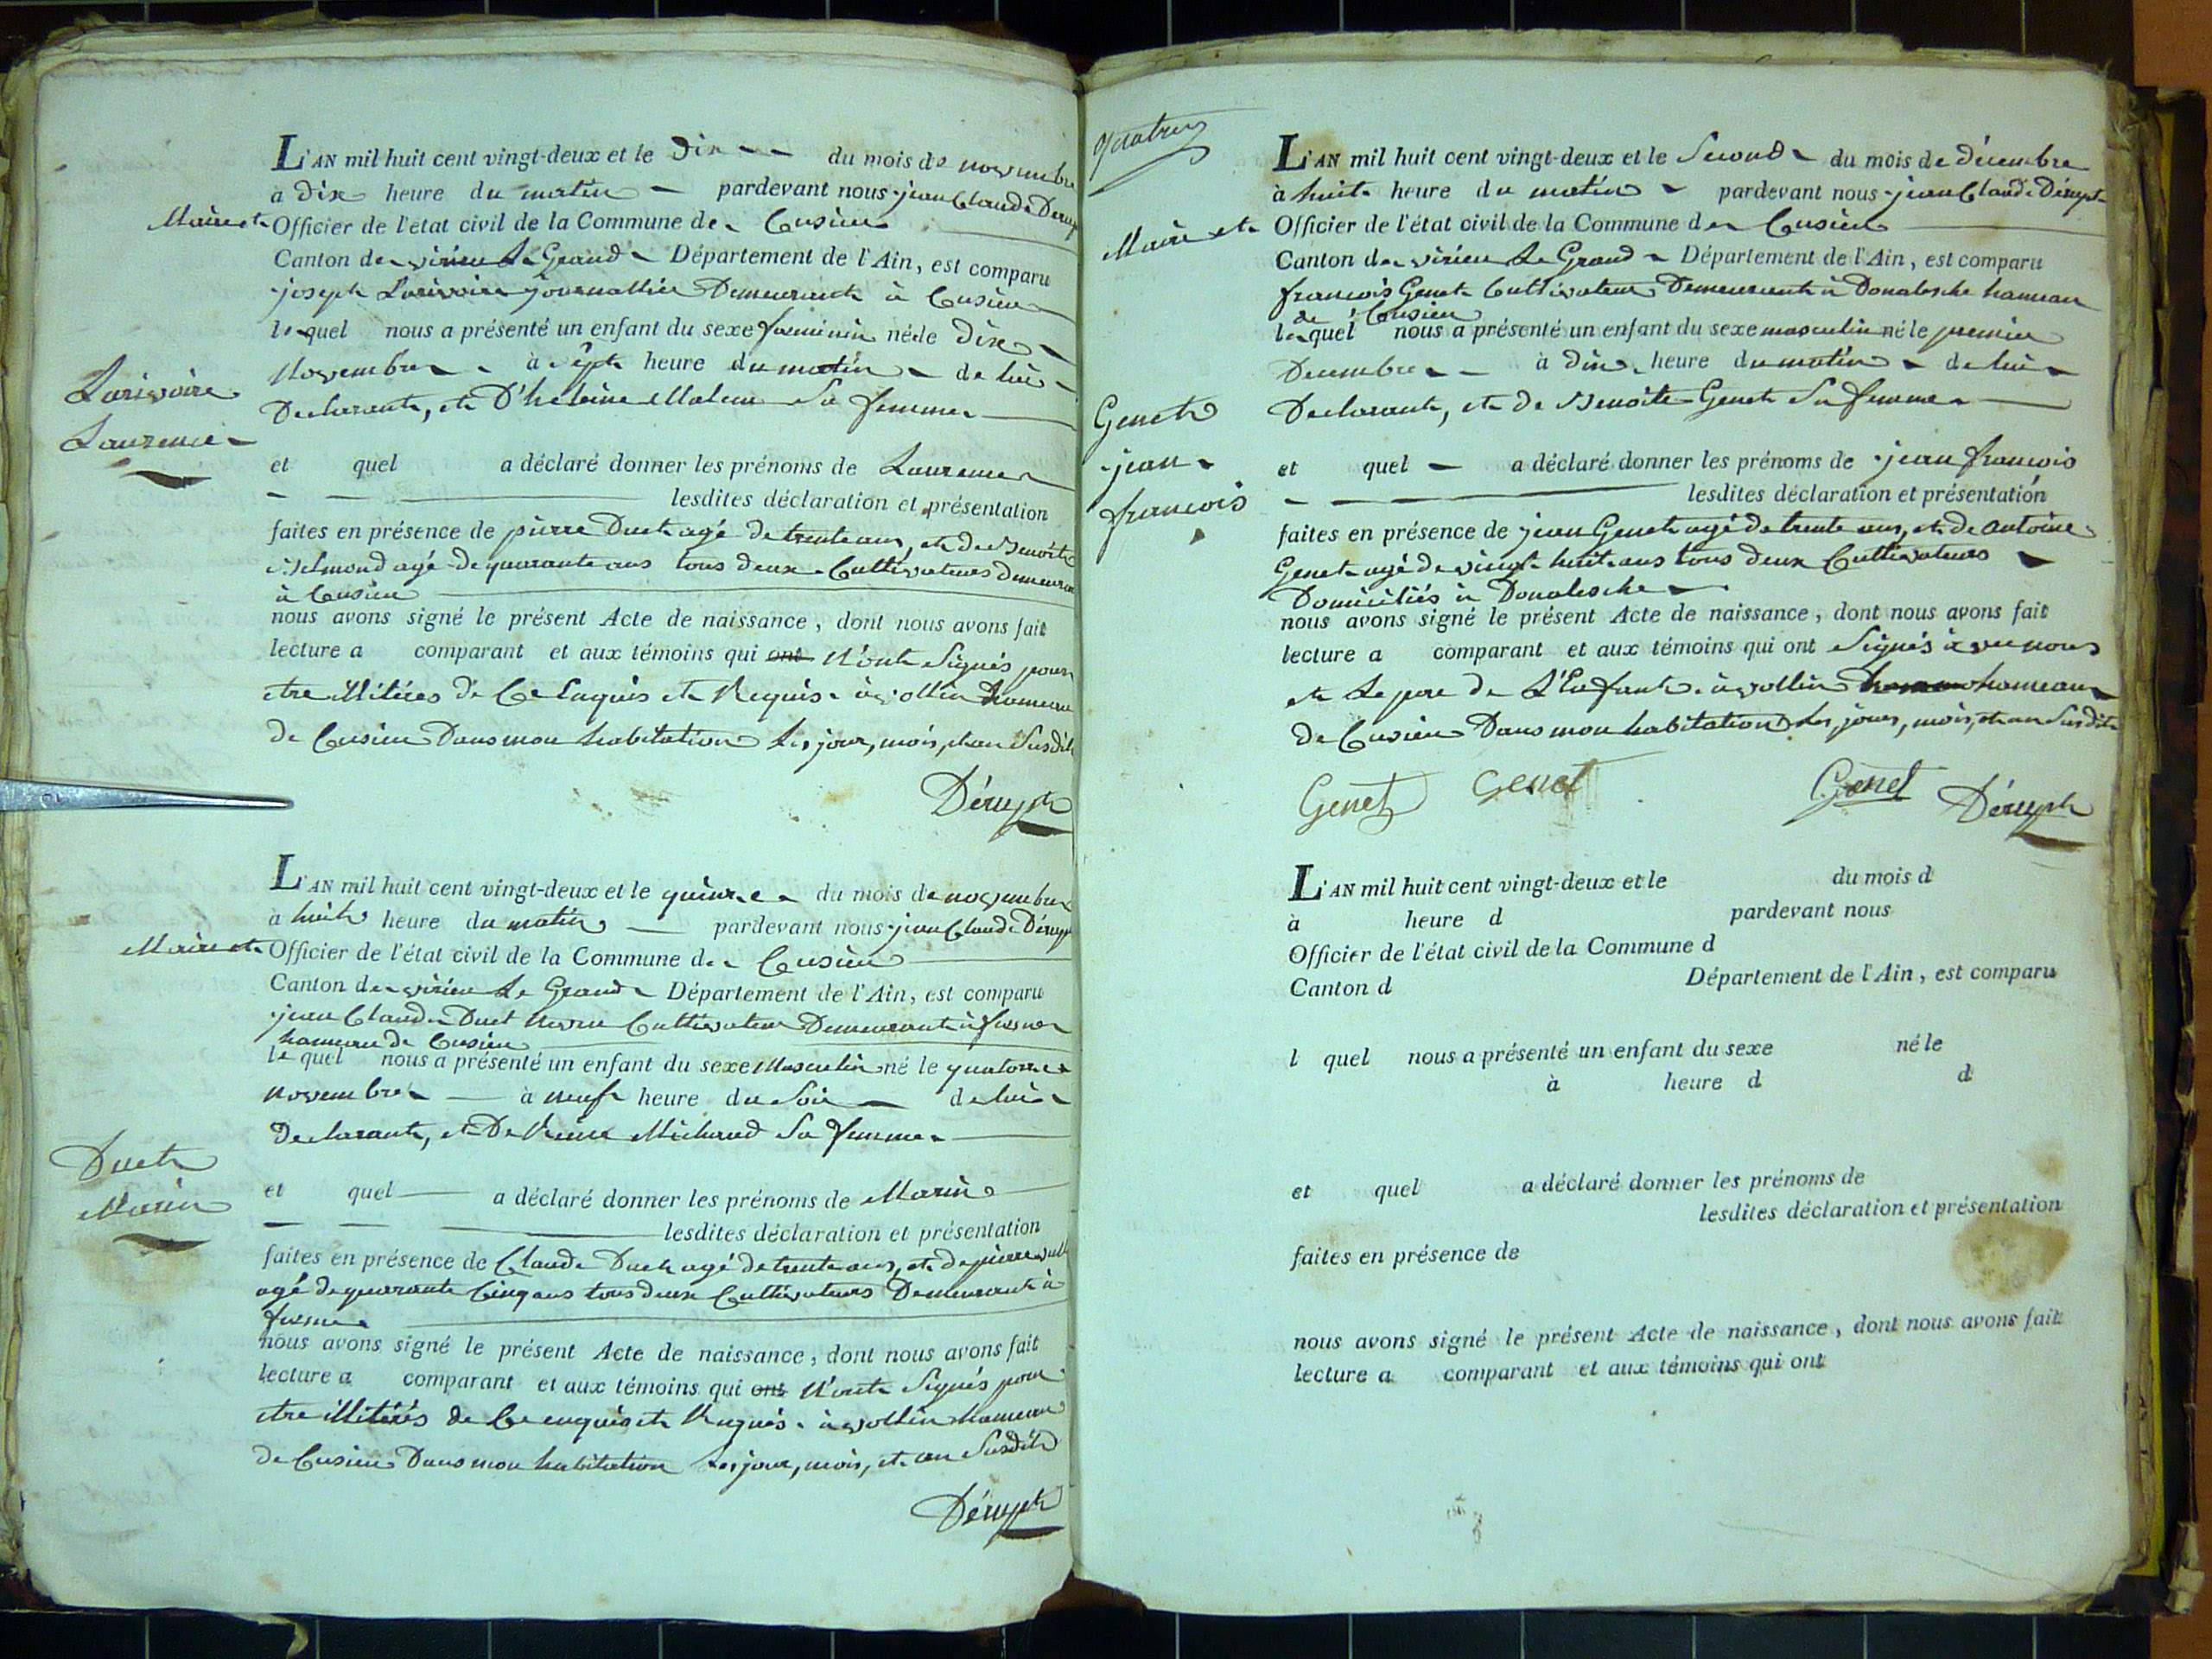 L'AN mil huit cent vingt-deux et le Dix du mois de novembre
à Dix heure du matin pardevant nous jean Claude Dérupt
Maire et Officier de l'état civil de la Commune de Cusieu
Canton de virieu Le Grand Département de l'Ain, est comparu
joseph Larivoire journallier Demeurant à Cusieu
lequel nous a présenté un enfant du sexe feminin né le Dix
Novembre à sept heure du matin de lui
Declarant, et D'helaine sa femme
Larivoire
Laurence
et quel a déclaré donner les prénoms de Laurence
lesdites déclaration et présentation
faites en présence de pierre Duet agé de trente ans, et de Benoit
agé de quarante ans tous deux Cultivateurs
à Cusieu
nous avons signé le présent Acte de naissance, dont nous avons fait
lecture a comparant et aux témoins qui ont N'ont Signés pour
etre illitérés de Ce Enquis et Requis. à vollin hameau
de Cusieu Dans mon habitation Les jour, mois, et an Susdit
Dérupt
L'AN mil huit cent vingt-deux et le quinze du mois de novembre
à huit heure du matin pardevant nous jean Claude Dérupt
Maire et Officier de l'état civil de la Commune de Cusieu
Canton de virieu Le Grand Département de l'Ain, est comparu
jean Claude Duet Cultivateur Demeurant à
hameau de Cusieu
le quel nous a présenté un enfant du sexe Masculin né le quatorze
novembre à neuf heure du Soir de lui
Declarant, et De Reine Michaud Sa femme
Duet
Marin
et quel a déclaré donner les prénoms de Marin
lesdites déclaration et présentation
faites en présence de Claude Duet agé de trente ans, et de pierre
agé de quarante Cinq ans tous deux Cultivateurs Demeurant à
nous avons signé le présent Acte de naissance, dont nous avons fait
lecture a comparant et aux témoins qui ont N'ont Signés pour
etre illitérés de Ce enquis et Requis. à vollin hameau
de Cusieu Dans mon habitation Les jour, mois, et an Susdit
Dérupt
quatre
L'AN mil huit cent vingt-deux et le Second du mois de décembre
à huit heure du matin pardevant nous jean Claude Dérupt
Maire et Officier de l'état civil de la Commune de Cusieu
Canton de virieu Le Grand Département de l'Ain, est comparu
francois Genet Cultivateur Demeurant à Donalesche hameau
de Cusieu
lequel nous a présenté un enfant du sexe masculin né le premier
Decembre à Dix heure du matin de lui
Declarant, et de Benoite Genet Sa femme
Genet
jean
francois
et quel a déclaré donner les prénoms de jean francois
lesdites déclaration et présentation
faites en présence de jean Genet agé de trente ans, et de antoine
Genet agé de vingt huit ans tous deux Cultivateurs
Domiciliés à Donalesche
nous avons signé le présent Acte de naissance, dont nous avons fait
lecture a comparant et aux témoins qui ont Signés avec nous
et Le pere de L'Enfant. à vollin hameau
de Cusieu Dans mon habitation Les jour, mois, et an Susdit
Genet Genet Genet Dérupt
L'AN mil huit cent vingt-deux et le du mois d
à heure d pardevant nous
Officier de l'état civil de la Commune d
Canton d Département de l'Ain, est comparu
l quel nous a présenté un enfant du sexe né le
à heure d d
et quel a déclaré donner les prénoms de
lesdites déclaration et présentation
faites en présence de
nous avons signé le présent Acte de naissance, dont nous avons fait
lecture a comparant et aux témoins qui ont